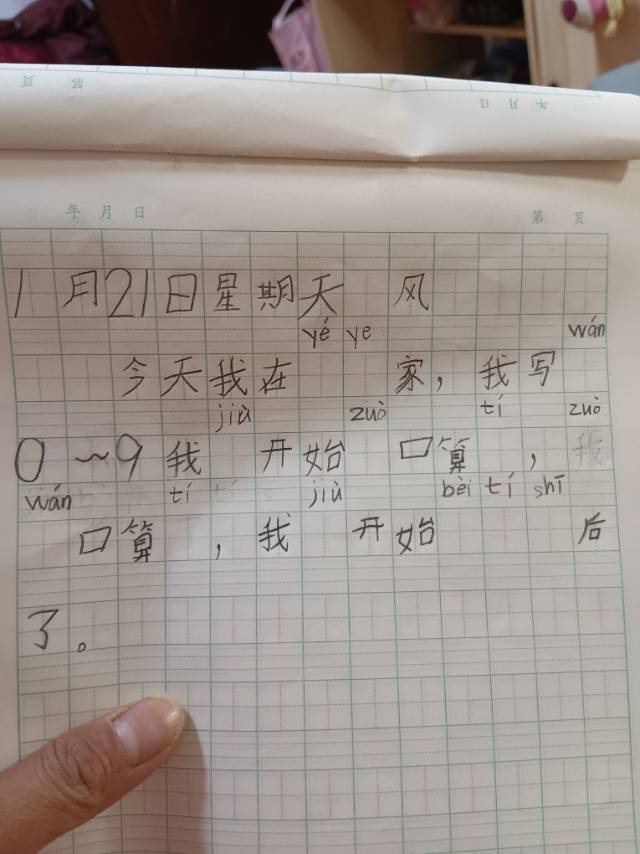 第 页
年 月 日
年 月 日
第 页
1月21日星期天 风
yé ye wán
今天我在 家，我写
jiù zuò tí zuò
0～9我 开始 口算 ，我
wán tí tí jiù bèi tí shī
口算 ，我 开始 后
了。